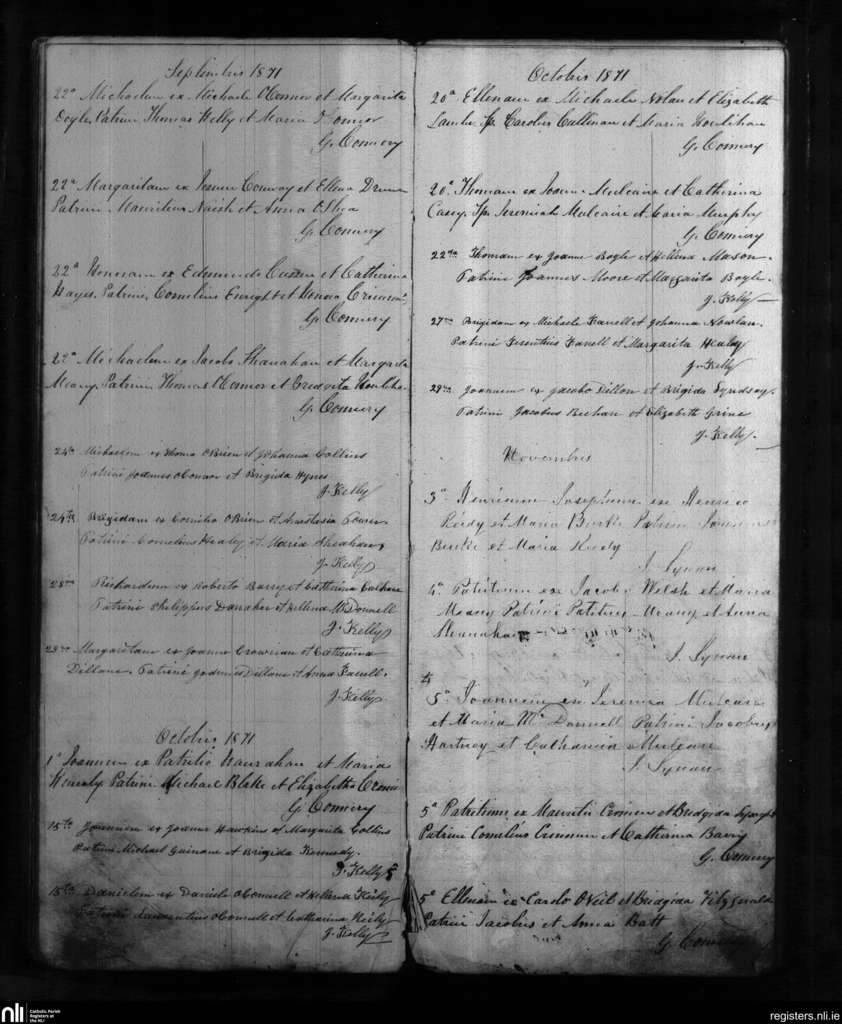 Septembris 1871
22a Michaelem ex Michaele O'Connor et Margarita
Doyle, Patrini Thomas Kelly et Maria O'Connor
G. Connery
22a Margaritam ex Conway et Ellena
Patrini Mauritius Naish et Anna O'Shea
G. Connery
22a Honoram ex Edmundo et Catherina
Hayes. Patrini, Cornelius Enright et Honora
G. Connery
22a Michaelem ex Jacobo Shanahan et Margarita
Meany, Patrini Thomas O'Connor et
G. Connery
24th Michaelem ex Thoma O'Brien et Johanna Collins
Patrini Joannes O'Connor et Brigida Hynes
J. Kelly
24th Brigidam ex Cornelio O'Brien et Anastasia
Patrini Cornelius Healy et Maria Sheahan
J. Kelly
28th Richardum ex Roberto Barry et Catherina
Patrini Philippus Danaher et Hellena McDonnell
J. Kelly
28th Margaritam ex Joanne et Catherina
Dillane. Patrini Joannes Dillane et Anna Farrell.
J. Kelly
Octobris 1871
1a Joannem ex Patritio Hanrahan et Maria
Patrini Michael Blake et Elizabetha
G. Connery
15th Joannem ex Joanne Hawkins et Margarita Collins
Patrini Michael Guinane et Brigida Kennedy.
J. Kelly
15th Danielem ex Daniele O'Connell et Hellena Kiely
Patrini O'Connell et Catherina Kiely
J. Kelly
Octobris 1871
20a Ellenam ex Michaele Nolan et Elizabeth
Lawler Sp. Carolus Cullinan et Maria Houlihan
G. Connery
20a Thomam ex Joanne Mulcaire et Catherina
Casey. Sp. Jeremiah Mulcaire et Maria Murphy
G. Connery
22nd Thomam ex Joanne Bogle et Hellena Mason.
Patrini Joannes Moore et Margarita Bogle.
J. Kelly
27th Brigidam ex Michaele Farrell et Johanna Nowlan.
Patrini Farrell et Margarita Healy
J. Kelly
29th Joannem ex Jacobo Dillon et Brigida Lyndsay.
Patrini Jacobus et Elizabeth
J. Kelly.
Novembris
3a Henricum Josephum ex Henrico
Reidy et Maria Burke Patrini Joannes
Burke et Maria Reidy
J. Synan
4a Patritium ex Jacobo Welsh et Maria
Meany Patrini Patritius Meany et Anna
J. Synan
5a Joannem ex Jeremia Mulcare
et Maria McDonnell Patrini Jacobus
Hartney et Catharina Mulcare
J. Synan
5a Patritium ex Mauritio et Bridgida
Patrini Cornelius et Catherina Barry
G. Connery
5a Ellenam ex Carolo O'Neil et Bridgida Fitzgerald
Patrini Jacobus et Anna Batt
G. Connery
nli
Catholic Parish
Registers at
the NLI
registers.nli.ie